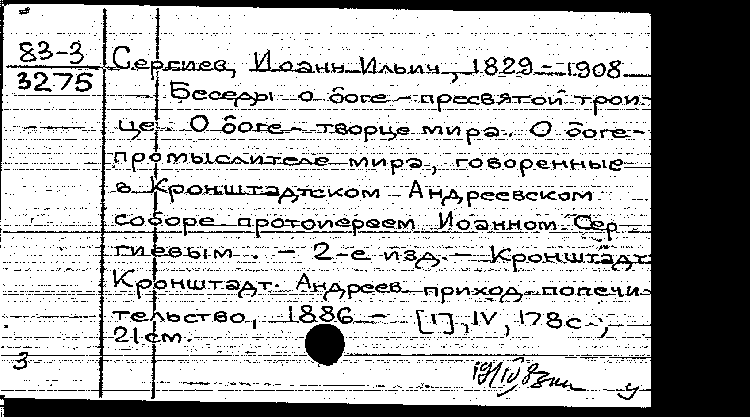 83-3
3275
Сергиев, Иоанн Ильич, 1829-1908
Беседы о боге - пресвятой трои-
це. О боге - творце мира. О боге-
промыслителе мира, говоренные
в Кронштадтском Андреевском
соборе протоиереем Иоанном Сер
гиевым. - 2-е изд. - Кронштадт:
Кронштадт. Андреев. приход. попечи-
тельство, 1886 - [1], IV, 178с.;
21см.
3
у